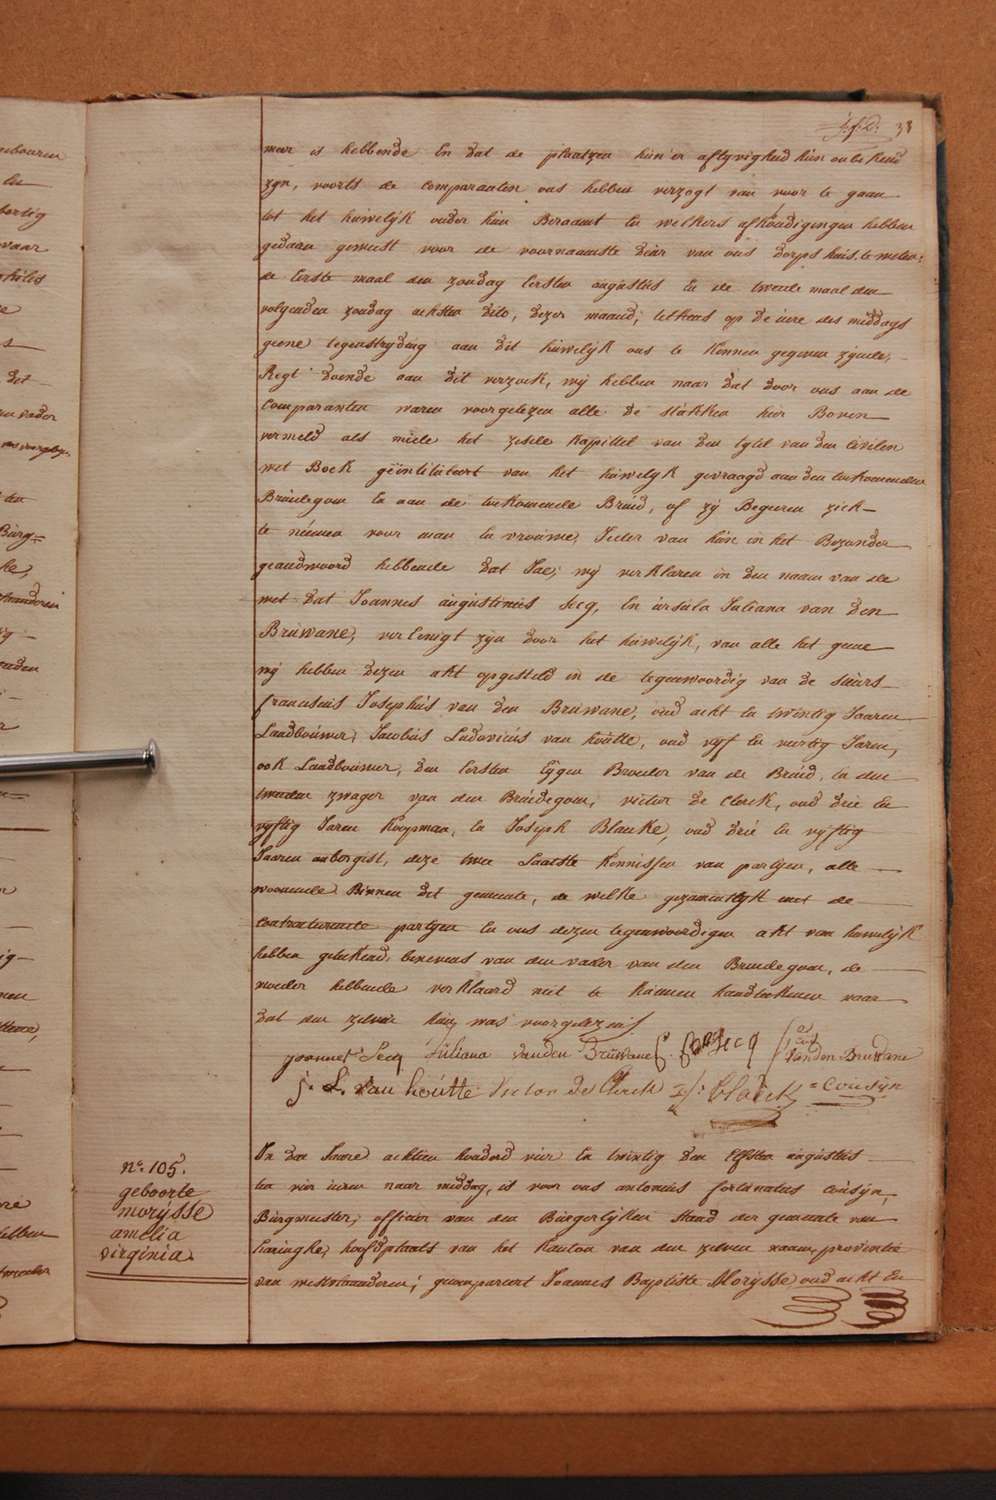 38
meer is hebbende En dat de plaatzen hun'er aflyvigheid hun onbekend
zyn, voorts de comparanten ons hebben verzogt van voor te gaan
tot het huwelijk onder hun Beraamt En welkers afkondigingen hebben
gedaan geweest voor de voornaamste deur van ons dorps huis, te weten:
de Eerste maal den zondag Eersten augustus En de tweede maal den
volgenden zondag achsten dito, dezer maand; telkens op de ure des middags
geene tegenstryding aan dit huwelijk ons te kennen gegeven zijnde,
Regt doende aan dit verzoek, wij hebben naar dat door ons aan de
Comparanten waren voorgelezen alle de stukken hier Boven
vermeld als mede het zesde kapittel van den tytel van den Civilen
wet Boek geïntituleert van het huwelyk gevraagd aan den toekomenden
Bruidegom En aan de toekomende Bruid, of zÿ Begeeren zich
te neemen voor man En vrouwe, Ieder van hun in het Bezonder
geandwoord hebbende dat Jae; wij verklaren in den naam van de
wet dat Joannes augustinus Secq, En ursula Juliana van den
Bruwane, verEenigt zyn door het huwelijk, van alle het geene
wij hebben dezen akt opgesteld in de tegenwoordig van de sieurs
franciscus Josephus van den Bruwane, oud acht En twintig Jaaren
Landbouwer, Jacobus Ludovicus van houtte, oud vyf En veertig Jaren,
ook Landbouwer, den Eersten Eygen Broeder van de Bruid, En den
tweeden zwager van den Bruidegom, victor de Clerck, oud drie En
vyftig Jaren koopman, En Joseph Blanke, oud drie En vyftig
Jaaren aubergist, deze twee Laatste kennissen van partyen, alle
woonende Binnen dit gemeente, de welke gezamentlyk met de
Contracteerende partyen En ons dezen tegenwoordigen akt van huwelijk
hebben geteekend, beneevens van den vader van den Bruidegom, de
moeder hebbende verklaard niet te kunnen handteekenen naar
dat den zelven hun was voorgelezen
joannes Secq Juliana vanden Bruwane Secq vanden Bruwane
j. L. van houtte Victor De Clerck Cousyn
n.° 105.
geboorte
morysse
amelia
virginia
In den Jaare achtien honderd vier En twintig den Elfsten augustus
ten vier uren naar middag, is voor ons antonius fortunatus Cousyn,
Burgmeester, officier van den Burgerlyken staad der gemeente van
haringhe, hoofdplaats van het kanton van den zelven naam, provintie
van westvlaanderen; gecompareert Joannes Baptiste Morysse oud acht En